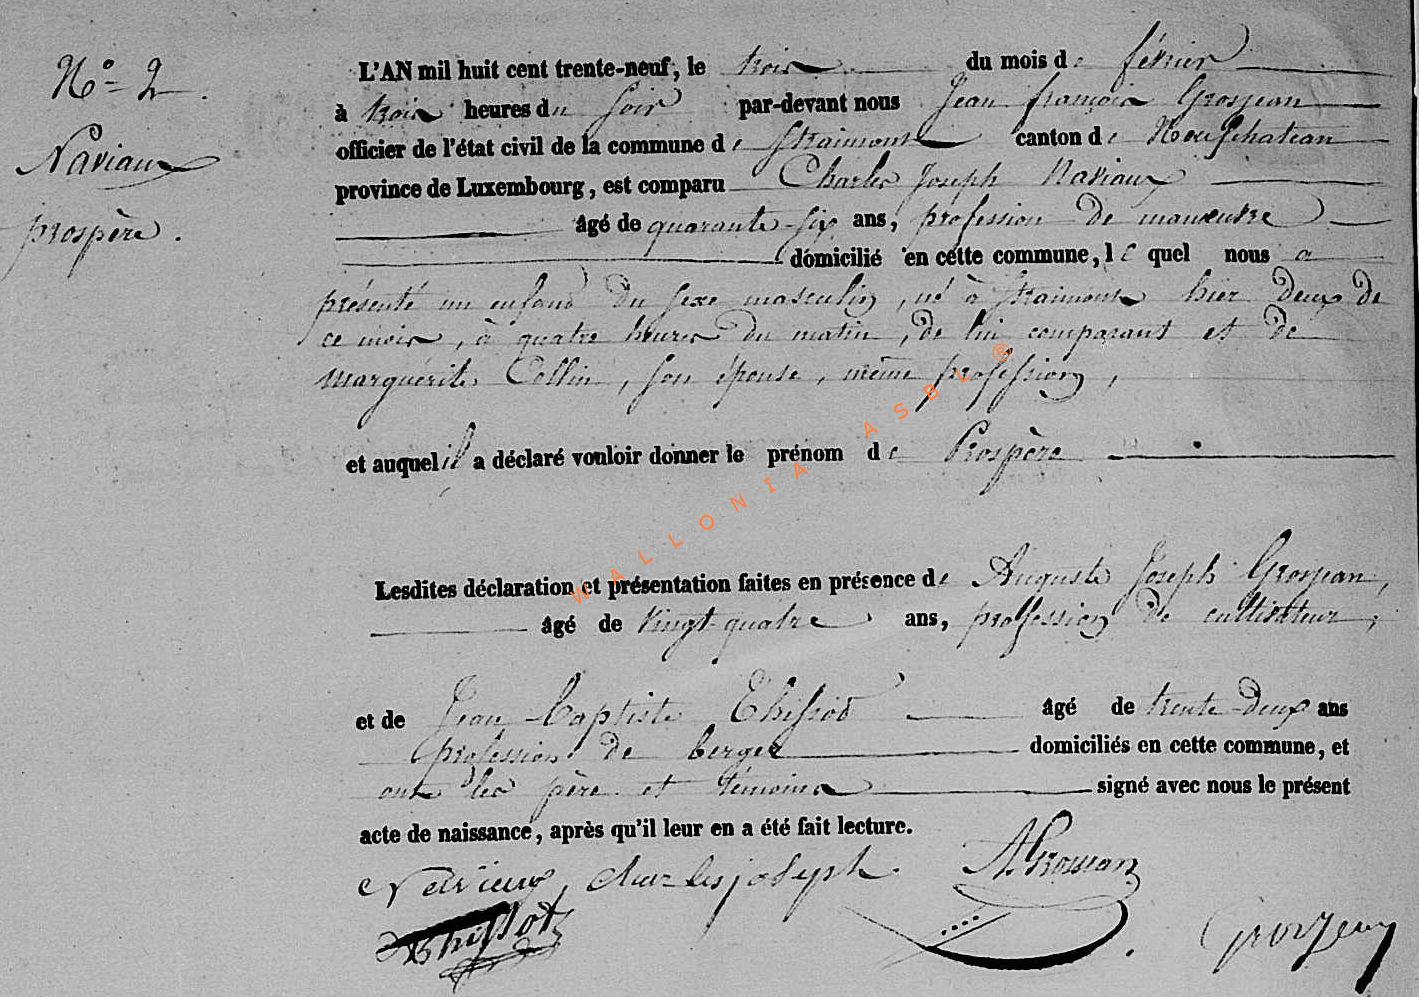 N° 2
Naviaux
prospère.
L'AN mil huit cent trente-neuf, le trois du mois de février
à trois heures du soir par-devant nous Jean françois Grosjean
officier de l'état civil de la commune de Straimont canton de Neufchateau
province de Luxembourg, est comparu Charles Joseph Naviaux
âgé de quarante-six ans, profession de manœuvre
domicilié en cette commune, lequel nous a
présenté un enfant du sexe masculin, né à Straimont hier deux de
ce mois, à quatre heures du matin, de lui comparant et de
Marguérite Collin, son épouse, même profession,
et auquel il a déclaré vouloir donner le prénom de Prospère
Lesdites déclaration et présentation faites en présence de Auguste Joseph Grosjean,
âgé de vingt quatre ans, profession de cultivateur,
et de Jean-Baptiste Thissot âgé de trente-deux ans
profession de berger domiciliés en cette commune, et
ont les père et témoins signé avec nous le présent
acte de naissance, après qu'il leur en a été fait lecture.
charles joseph. A. Grosjean
Thissot Grosjean
WALLONIA ASBL ®